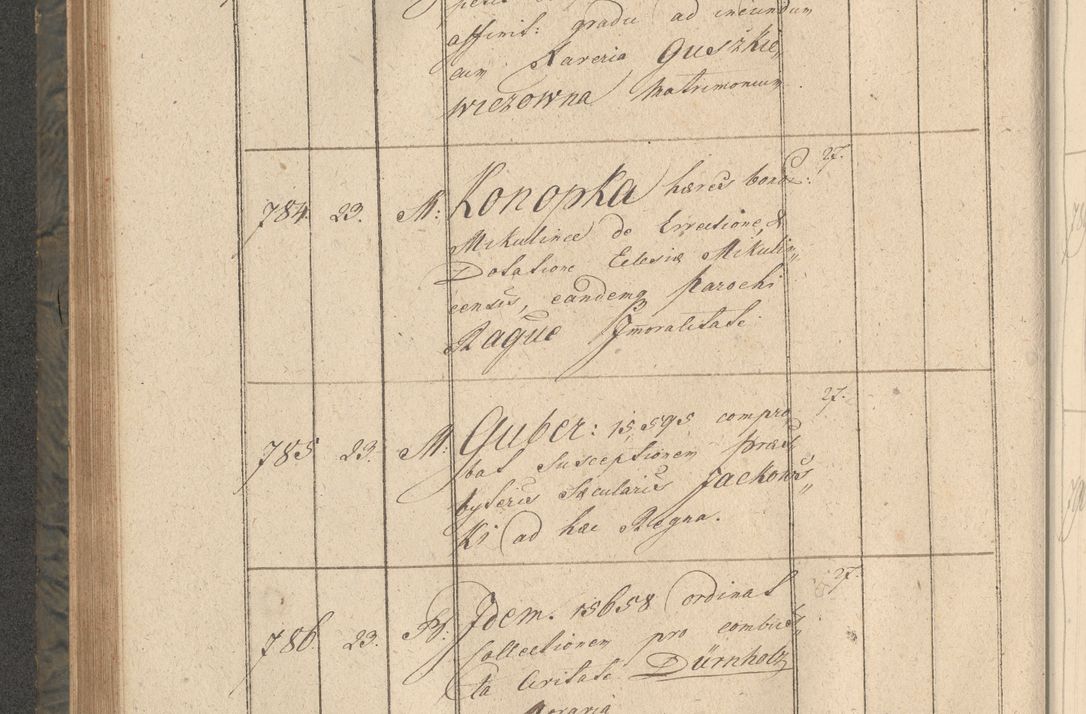 affinit: gradu ad ineundum
cum Xaveria Guszkie
wiczowna Matrimonium
784. 23. M: Konopka hæres bonor: 27.
Mikulince de Erectione, &
Dotatione Eclesiæ Mikulin„
censis, eandemq Parochi
Raque Jmoralitate
785 23. M: Guber: 15,595 compro 27.
bat susceptionem præs„
byteris sæcularis Jackows„
Ki ad hæc Regna.
786. 23. Jdem. 15658 ordinat 27.
Collectionem pro combus„
ta Civitate Dürnholz